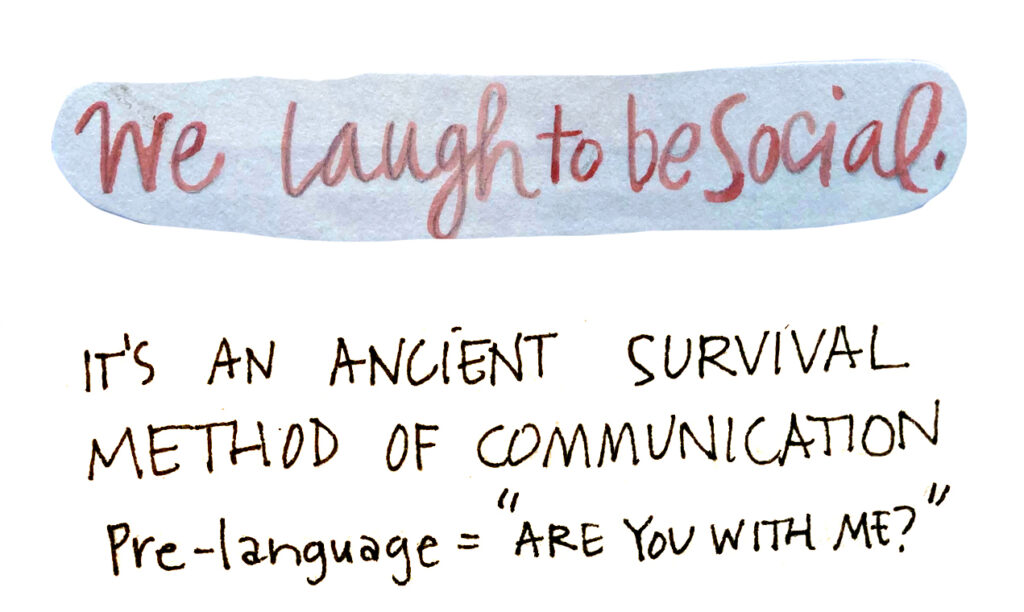 We laugh to be Social.
IT'S AN ANCIENT SURVIVAL
METHOD OF COMMUNICATION
Pre-language = "ARE YOU WITH ME?"